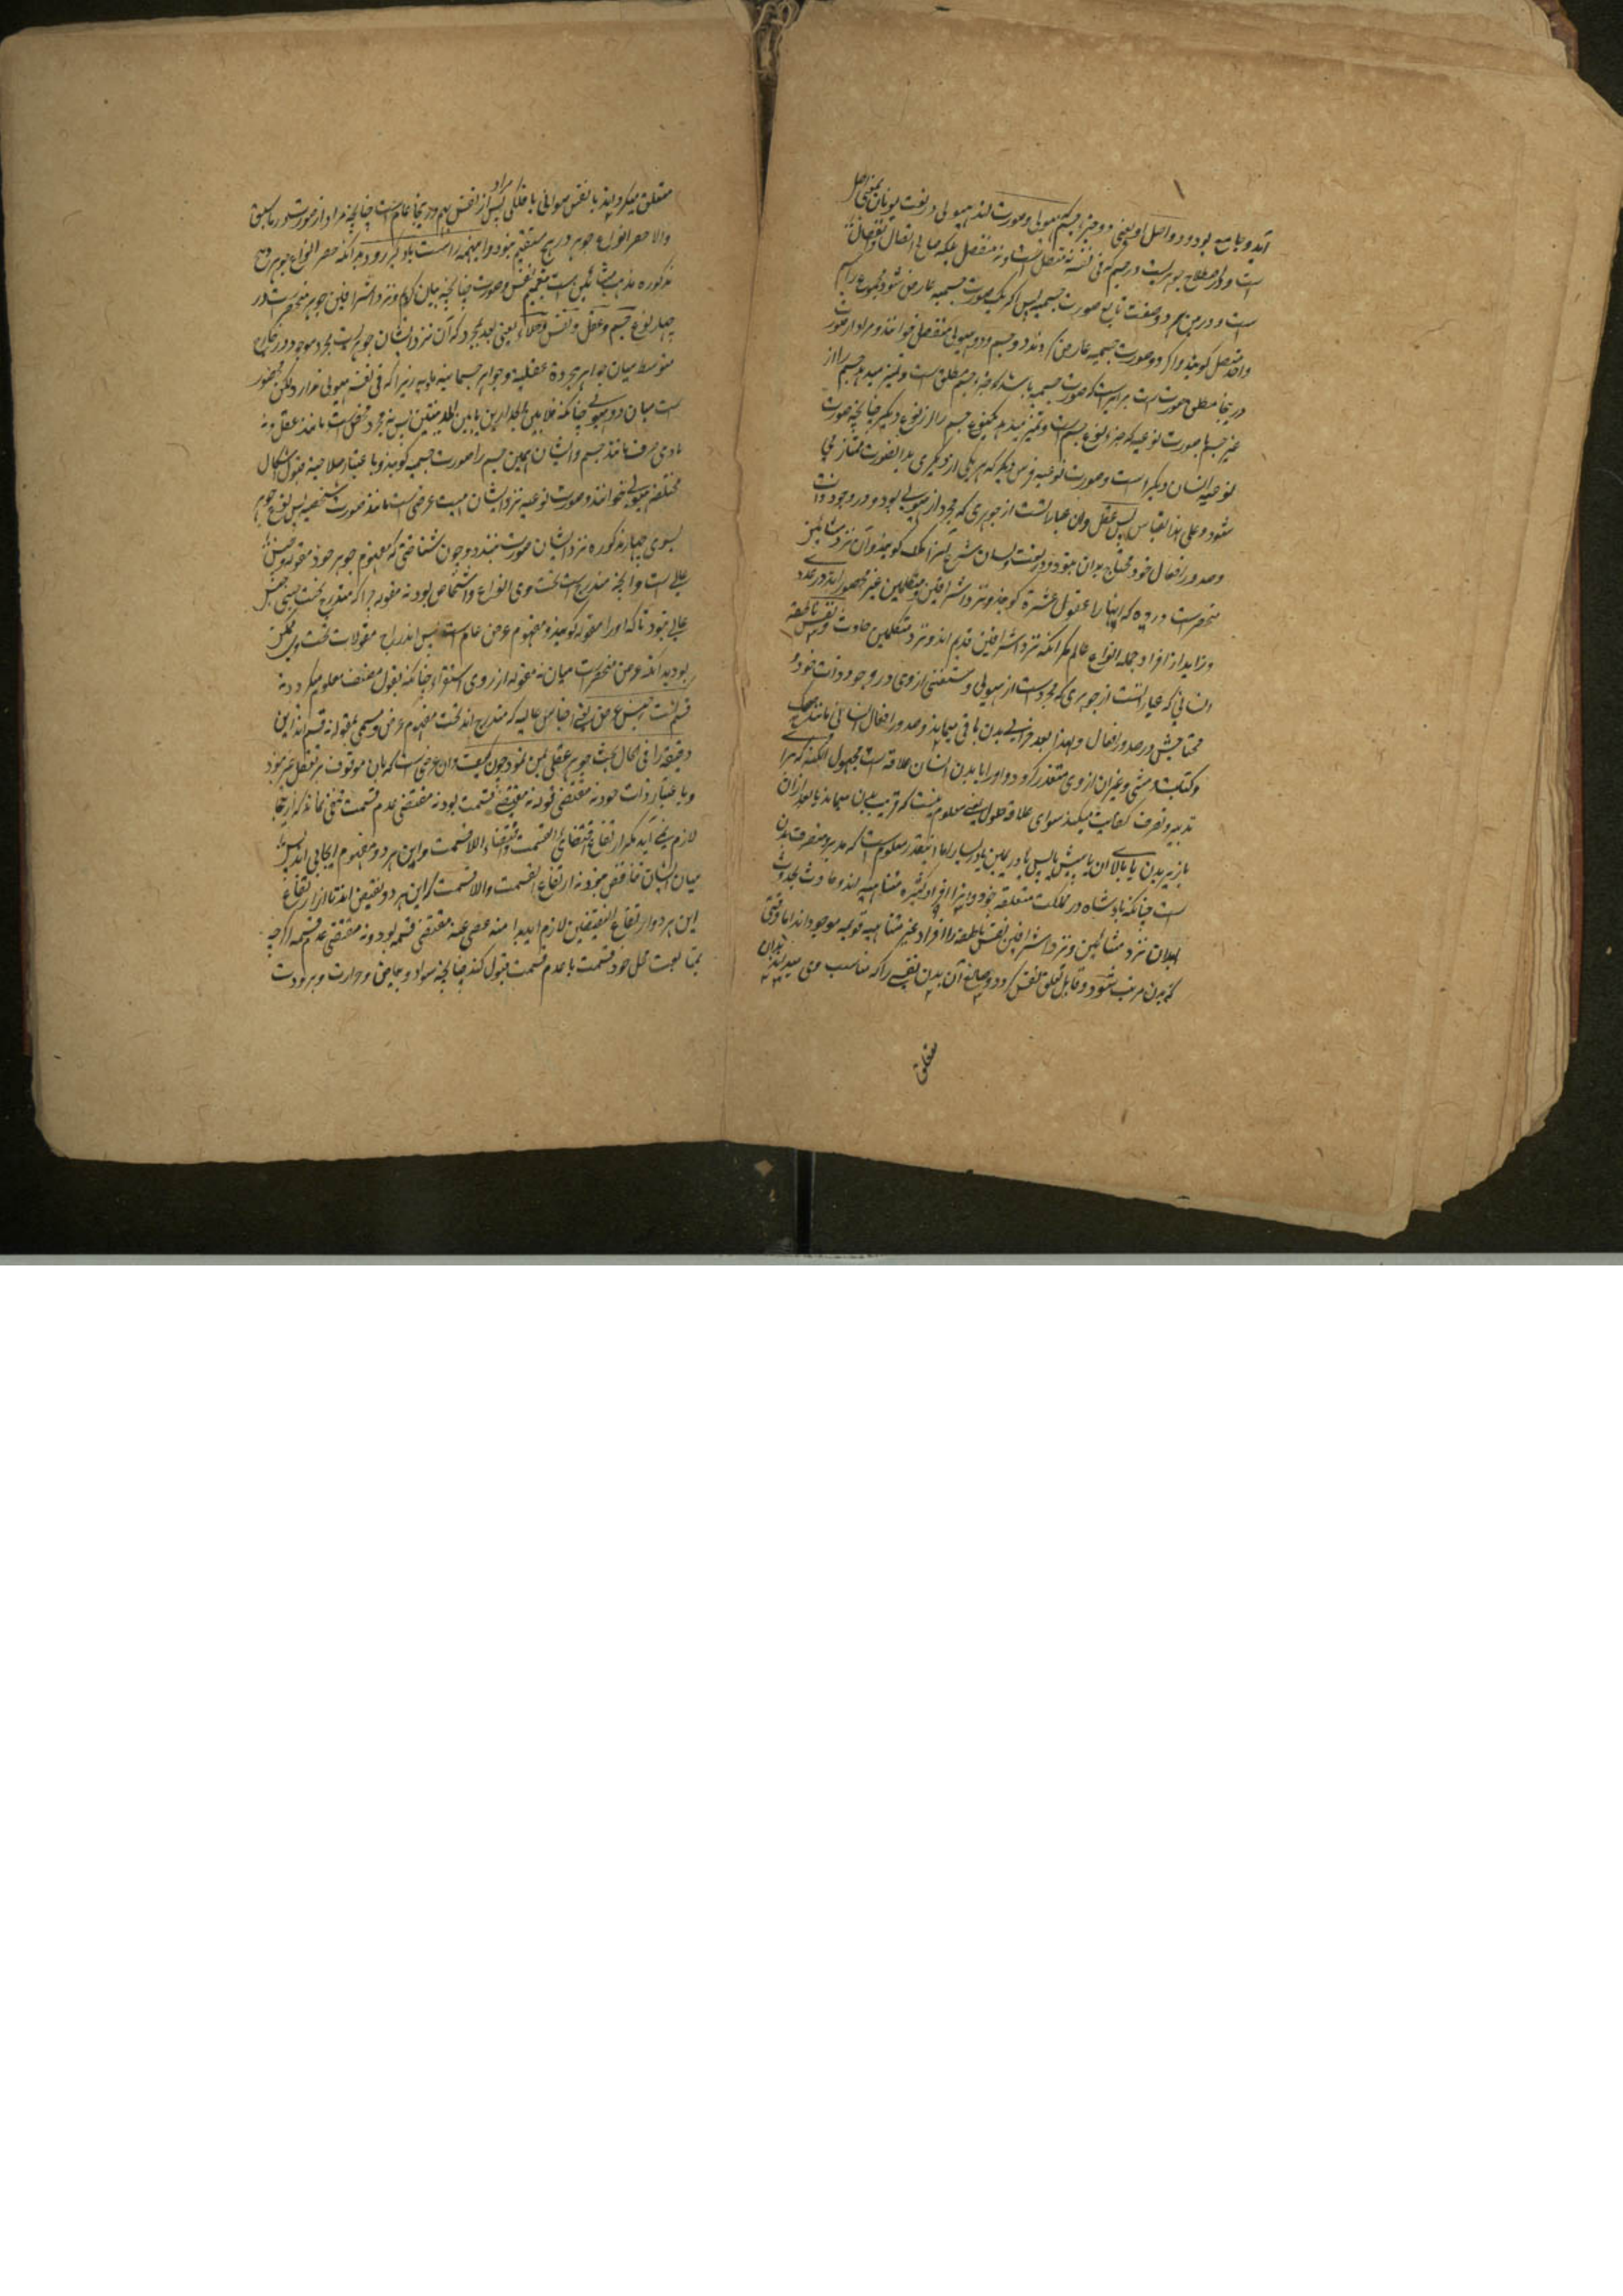 آید و یا میه بود و در اصل او یعنی دو جزء جسم هیولی و صورت اند هیولی در لغت یونان بمعنی اصل
است و در اصطلاح جوهریست در جسم که فی نفسه نه متصل است و نه منفصل بلکه صالح اتصال و انفصال
است و درین هر دو صفت تابع صورت جسمیه پس اگر یک صورت جسمیه عارض شود مجموع را جسم
واحد متصل گویند و اگر دو صورت جسمیه عارض گردند دو جسم و دو هیولی منفصل خوانند و مراد از صورت
در اینجا مطلق صورت است برابر است که صورت جسمیه باشد که جزء جسم مطلق است و تمیز میدهد جسم را از
غیر جسم یا صورت نوعیه که جزء نوع جسم است و تمیز میدهد یک نوع جسم را از نوع دیگر چنانچه صورت
نوعیه انسان دیگر است و صورت نوعیه فرس دیگر که هر یکی از دیگری بدان صورت ممتاز می
شود و علی هذا القیاس پس عقل و آن عبارتست از جوهری که مجرد از هیولی بود و در وجود ذات
و صدور افعال خود محتاج بدان نبود و در لغت و لسان شرع آنرا ملک گویند و آن نزد مشائین
منحصر است در ده که اینها را عقول عشره گویند و نزد اشراقین و متکلمین غیر محصور اند در عدد
و زاید از افراد جمله انواع عالم مگر آنکه نزد اشراقین قدیم اند و نزد متکلمین حادث و نفس ناطقه
انسانی که عبارتست از جوهری که مجرد است از هیولی و مستغنی از وی در وجود ذات خود و
محتاجش در صدور افعال و لهذا بعد خرابی بدن باقی میماند و صدور افعال انسانی مانند
و کتابت و مشی و غیر آن از وی متعذر گردد و او را با بدن انسان علاقه است مجهول الکنه که برای
تدبیر و تصرف کفایت میکند سوای علاقه حلول یعنی معلوم نیست که قریب بدن میماند یا بعد از آن
یا زیر بدن یا بالای آن یا پیش یا پس یا در یمین یا در یسار اما اینقدر معلوم است که مدبر و متصرف بدن
است چنانکه پادشاه در مملکت متعلقه خود و اینرا افراد کثیره متناهیه اند و حادث بحدوث
ابدان نزد مشائین و نزد اشراقین نفس ناطقه را افراد غیر متناهیه قدیمه موجود اند اما وقتی
که بدن مرتب شود و قابل تعلق نفس گردد و صالح آن بدن نفسی را که مناسب وی میداند بدان
متعلق
متعلق میگرداند یا نفس حیوانی یا فلکی پس مراد از نفس هم در اینجا عام است چنانچه مراد از صورت در ما سبق
والا حصر انواع جوهر در پنج مستقیم نبود و اینهمه راست یاد گیر و بدانکه حصر انواع جوهر در پنج
مذکوره مذهب مشائین است بتعمیم نفس و صورت چنانچه بیان کردم و نزد اشراقین جوهر منحصر است در
چهار نوع جسم و عقل و نفس و خلاء یعنی بعد مجرد که آن نزد ایشان جوهریست مجرد موجود در خارج
متوسط میان جواهر مجرده عقلیه و جواهر جسمانیه مادیه زیرا که فی نفسه هیولی ندارد لیکن محصور
است میان دو هیولی چنانکه خلا بین الجدارین یا بین المدینتین پس نه مجرد محض است مانند عقل و نه
مادی صرف مانند جسم و ایشان همین جسم را صورت جسمیه گویند و باعتبار صلاحیت قبول اشکال
مختلفه هیولی خوانند و صورت نوعیه نزد ایشان هیئت عرضی است مانند صورت شخصیه پس نوع جوهر
بسوی چهار مذکوره نزد ایشان صورت نبندد و چون شناختی که مفهوم جوهر خود مقوله و جنس
عالی است و آنچه مندرج است تحت وی انواع و اشخاص بود نه مقوله چرا که مندرج تحت جنس
عالی نبود تا که او را مقوله گویند و مفهوم عرض عام است پس اندراج مقولات تحت وی ممکن
بود بدانکه عرض منحصر است میان نه مقوله از روی استقراء چنانکه بقول مصنف معلوم میگردد نه
قسم گشت جنس عرض یعنی اجناس عالیه که مندرج اند تحت مفهوم عرض و مسمی بمقوله نه قسم اند این
دقیقه را فی الحال بحث جوهر عقلی بین نمود چون کیف و آن عرضی است که بر آن موقوف بر تعقل غیر نبود
و باعتبار ذات خود نه مقتضی قسمت بود نه مقتضی عدم قسمت مخفی نماند که از اینجا
لازم نمی آید مگر ارتفاع اقتضای القسمت و اقتضاء اللاقسمت و این هر دو مفهوم ایجابی اند پس
میان ایشان تناقض نبود نه ارتفاع القسمت واللاقسمت که این هر دو نقیض اند تا از ارتفاع
این هر دو ارتفاع النقیضین لازم آید لهذا منه عفی عنه مقتضی قسمه بود و نه مقتضی عدم قسمه اگر چه
بتابعت محل خود قسمت یا عدم قسمت قبول کند چنانچه سواد و بیاض و حرارت و برودت